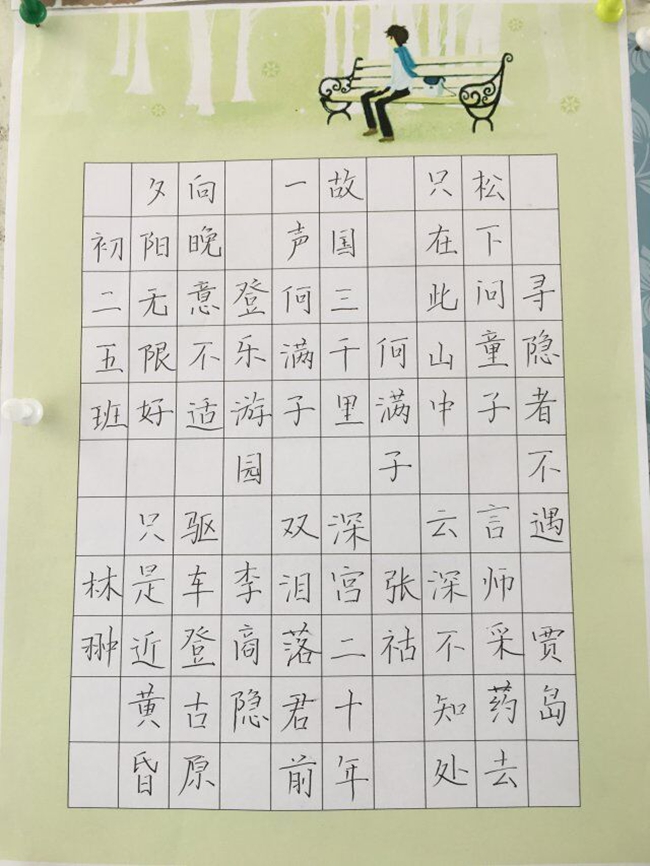 寻隐者不遇 贾岛
松下问童子 言师采药去
只在此山中 云深不知处
何满子 张祜
故国三千里 深宫二十年
一声何满子 双泪落君前
登乐游园 李商隐
向晚意不适 驱车登古原
夕阳无限好 只是近黄昏
初二五班 林翀